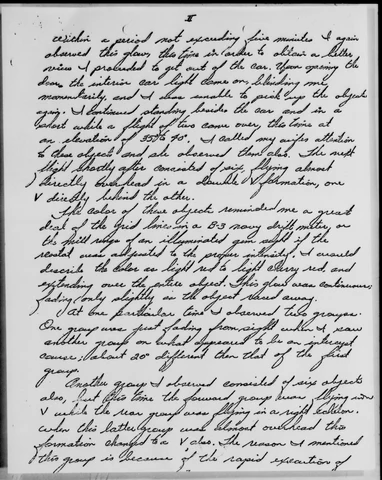 II
within a period not exceeding five minutes I again
observed this glow, this time in order to obtain a better
view I proceeded to get out of the car. Upon opening the
door the interior car light came on, blinding me
momentarily, and I was unable to pick up the objects
again. I continued standing beside the car and in a
short while a flight of two came over, this time at
an elevation of 35 to 40°. I called my wifes attention
to these objects and she observed them also. The next
flight shortly after consisted of six, flying almost
directly overhead in a double V formation, one
V directly behind the other.
The color of these objects reminded me a great
deal of the grid lines in a B-3 navy drift meter, or
the mill rings of an illuminated gun sight if the
reostat was adjusted to the proper intensity. I would
describe the color as light red to light cherry red, and
extending over the entire object. This glow was continuous;
fading only slightly as the object passed away.
At one particular time I observed two groups.
One group was just fading from sight when I saw
another group on what appeared to be an intercept
course; about 20° different than that of the first
group.
Another group I observed consisted of six objects
also, but this time the forward group were flying in a
V while the rear group was flying in a right echelon.
when this latter group was almost overhead this
formation changed to a V also. The reason I mentioned
this group is because of the rapid execution of